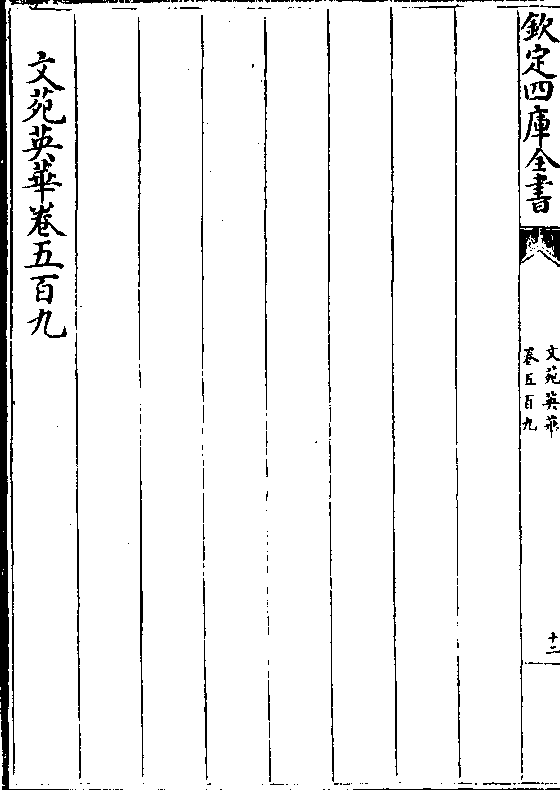 欽定四庫全書
文苑英華
卷五百九
十二
文苑英華卷五百九